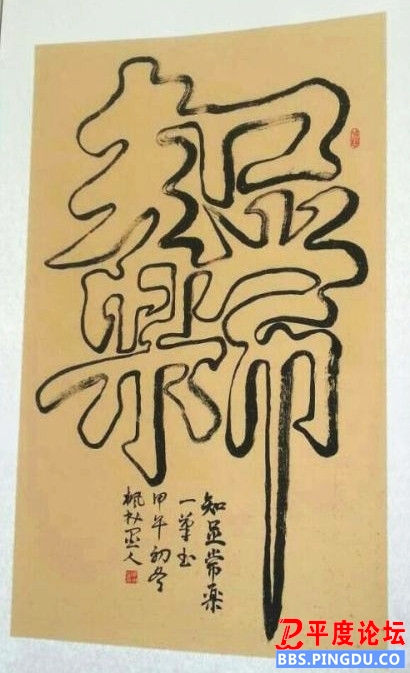 知足常樂
知足常樂
一筆书
甲午初冬
枫林人
平度论坛
BBS.PINGDU.CO